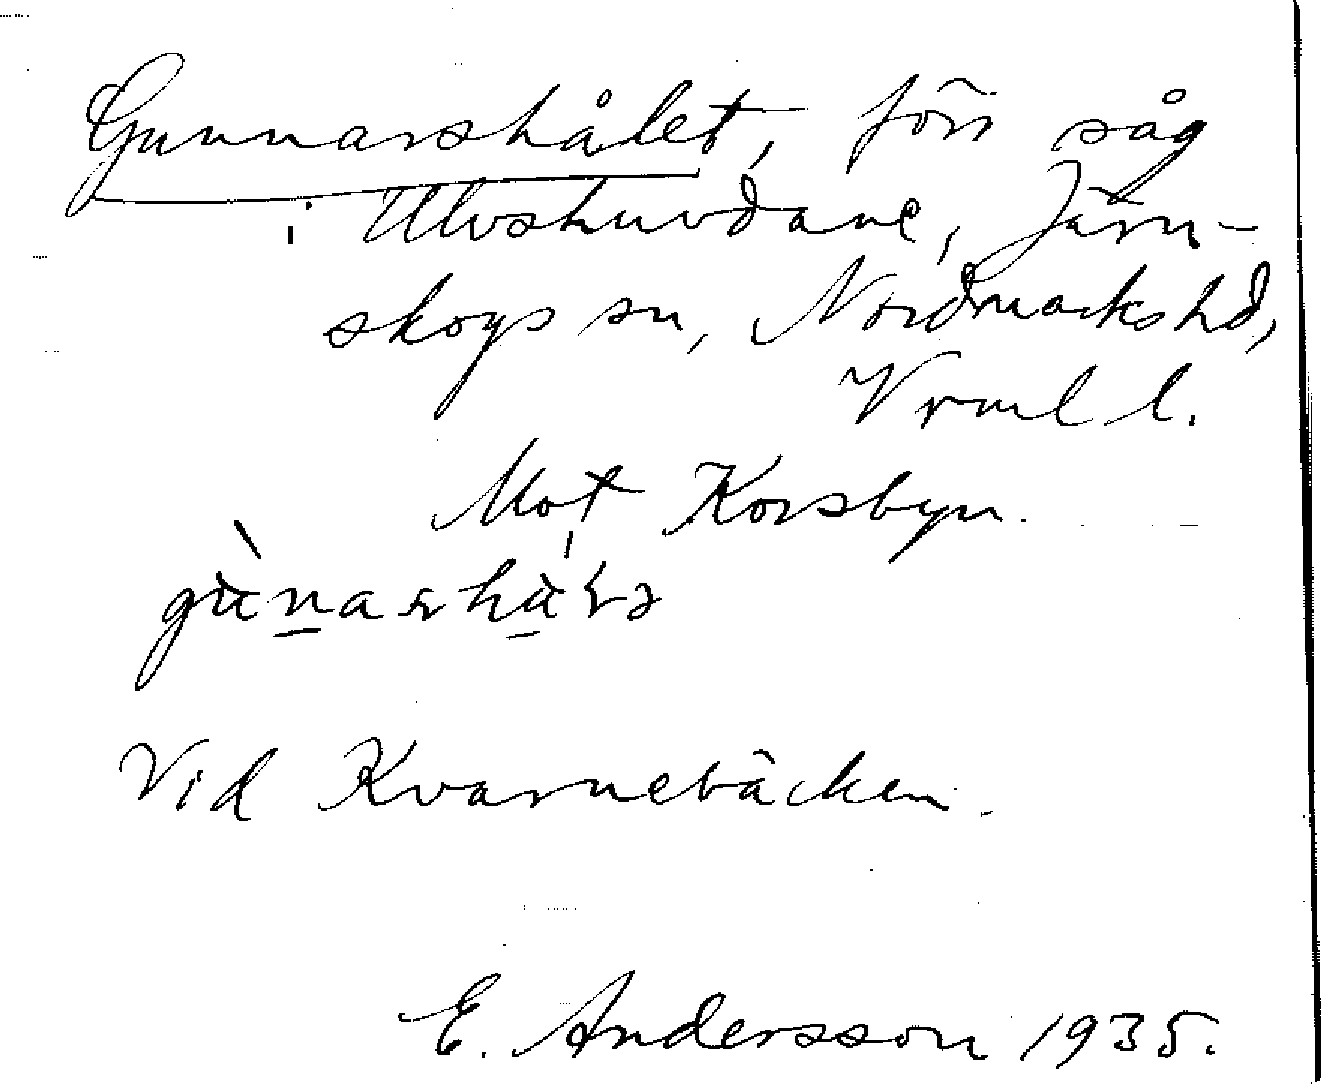 Gunnarshålet, förr såg
i Ulvshuvdane, Järn-
skogs sn, Nordmarks hd,
Vrml l.
Mot Korsbyn.
Vid Kvarnebäcken.
E. Andersson 1935.